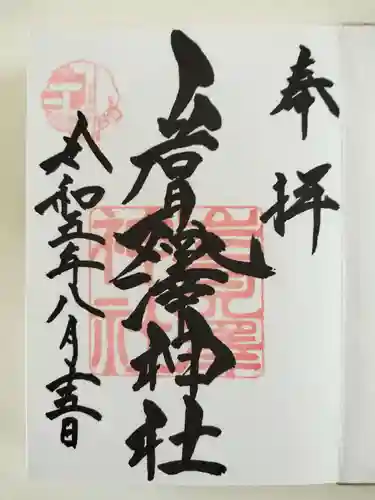 奉拝
岩見澤神社
岩見澤神社
令和五年八月十五日